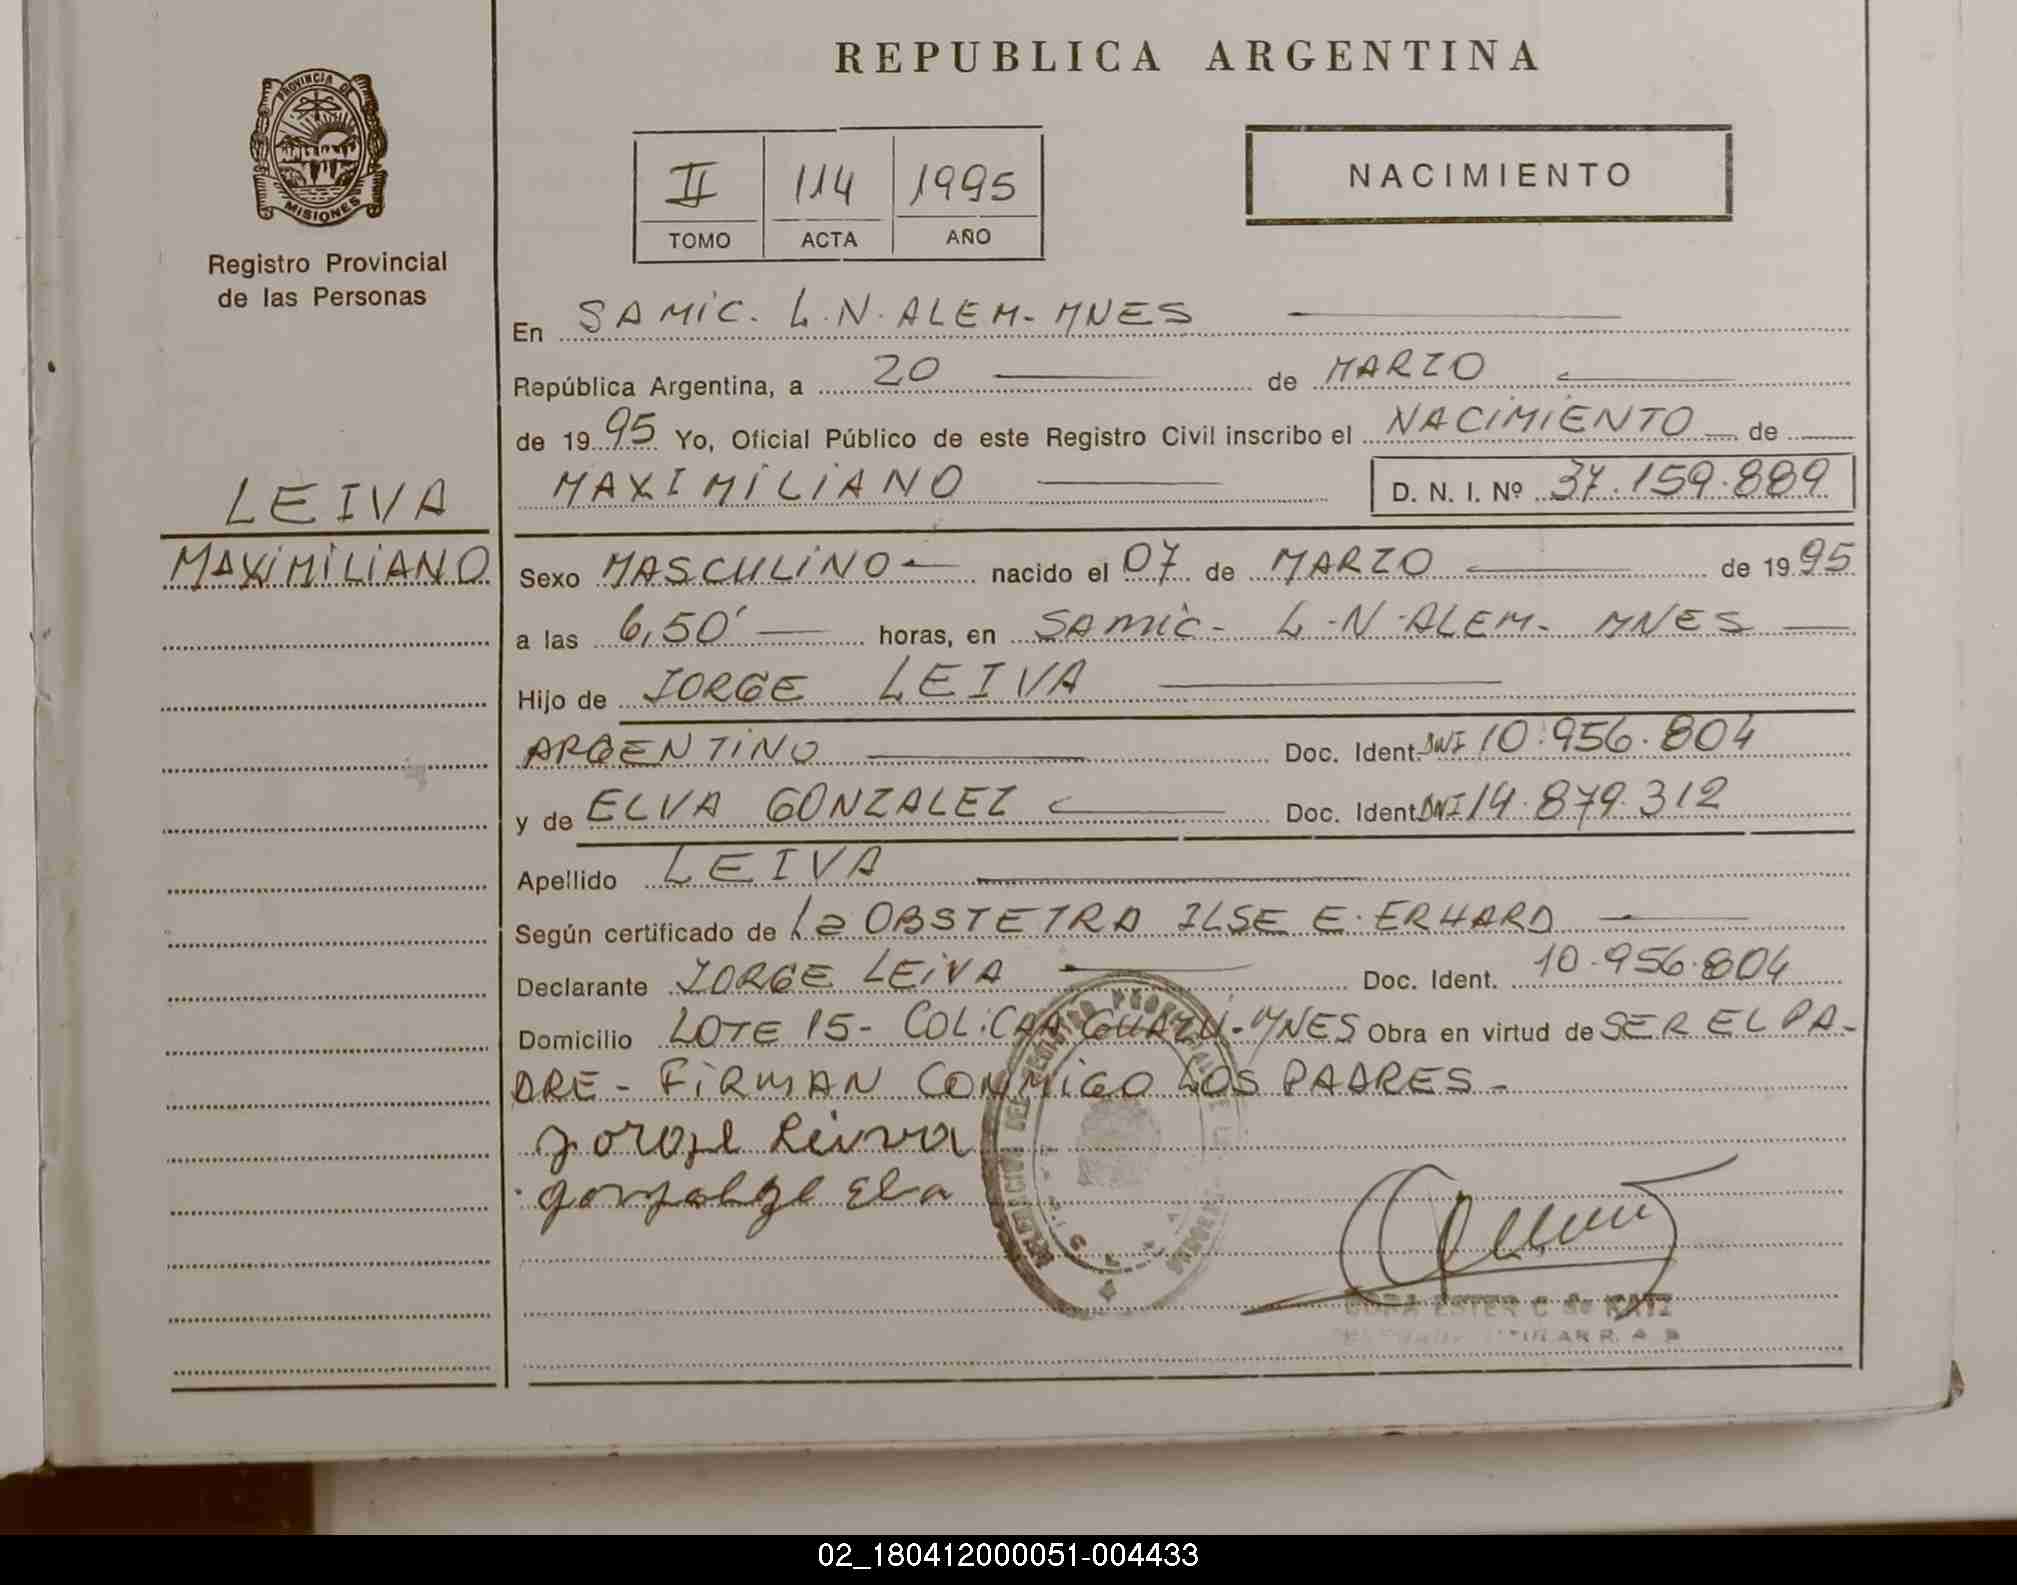 REPUBLICA ARGENTINA
PROVINCIA DE
MISIONES
Registro Provincial
de las Personas
II 114 1995
TOMO ACTA AÑO
NACIMIENTO
En SAMIC. L.N.ALEM-MNES
República Argentina, a 20 de MARZO
de 1995 Yo, Oficial Público de este Registro Civil inscribo el NACIMIENTO de
MAXIMILIANO D. N. I. Nº 37.159.889
LEIVA
MAXIMILIANO
Sexo MASCULINO nacido el 07 de MARZO de 1995
a las 6,50' horas, en SAMIC- L.N.ALEM- MNES
Hijo de JORGE LEIVA
ARGENTINO Doc. Ident. DNI 10.956.804
y de ELVA GONZALEZ Doc. Ident. DNI 14.879.312
Apellido LEIVA
Según certificado de La OBSTETRA ILSE E. ERHARD
Declarante JORGE LEIVA Doc. Ident. 10.956.804
Domicilio LOTE 15- COL.CAA GUAZU-MNES Obra en virtud de SER EL PA-
DRE - FIRMAN CONMIGO LOS PADRES-
Jorge Leiva
gonzalez Elva
ESTER C de
02_180412000051-004433